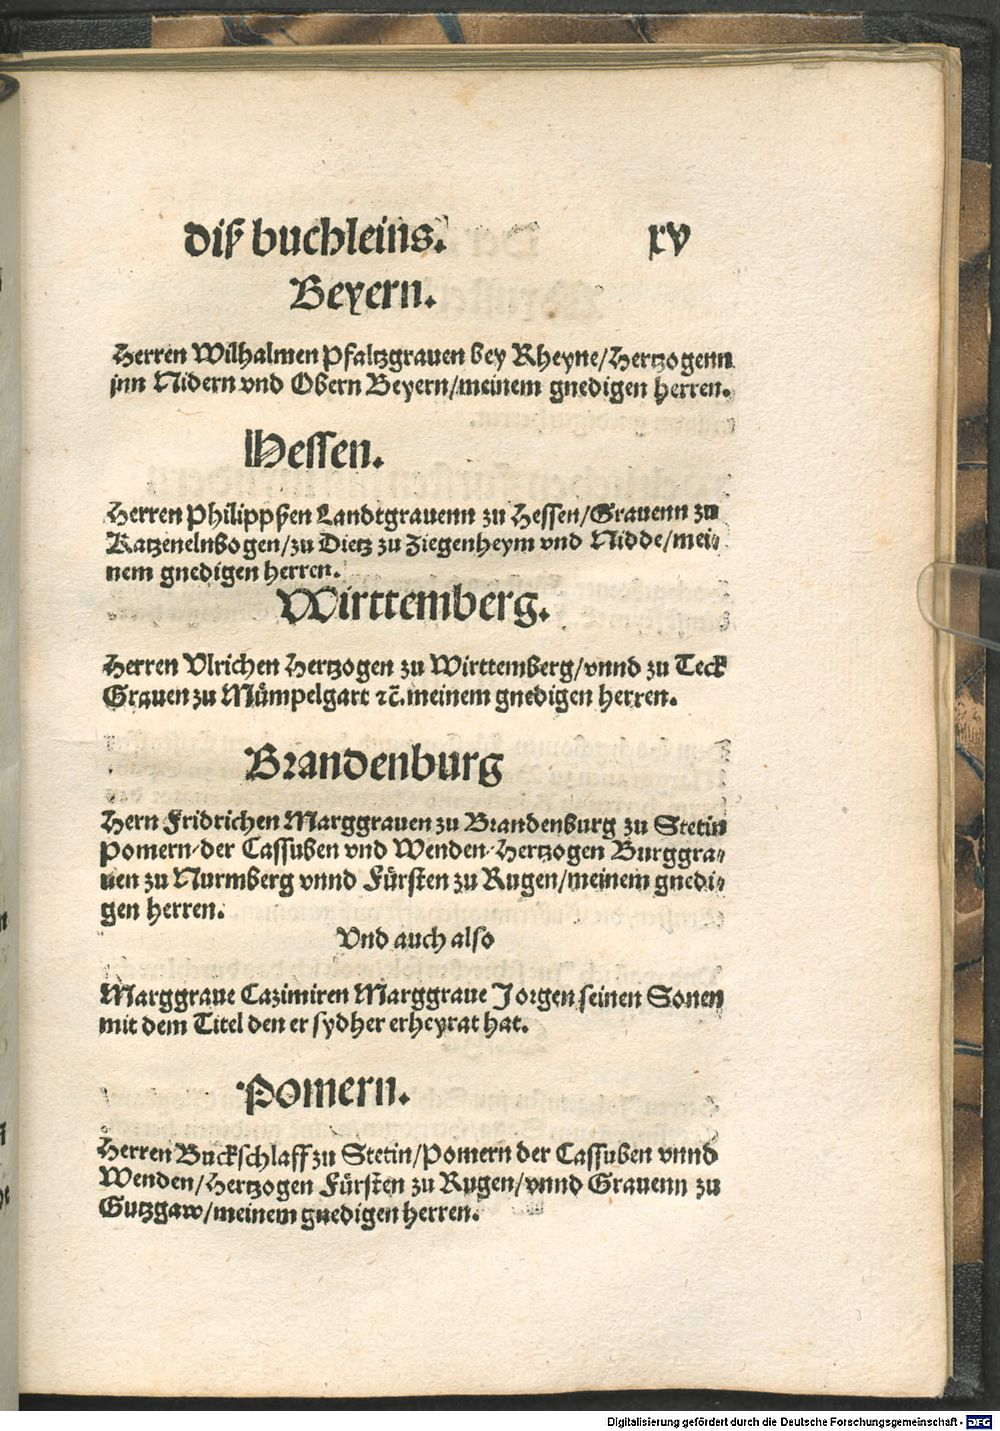 diß buchleins. xv
Beyern.
Herren Wilhalmen Pfaltzgrauen bey Rheyne/Hertzogenn
jnn Nidern vnd Obern Beyern/meinem gnedigen herren.
Hessen.
Herren Philippßen Landtgrauenn zu Hessen/Grauenn zu
Katzenelnbogen/zu Dietz zu Ziegenheym vnd Nidde/mei⸗
nem gnedigen herren.
Wirttemberg.
Herren Vlrichen Hertzogen zu Wirttemberg/vnnd zu Teck
Grauen zu Mümpelgart ⁊c̄. meinem gnedigen herren.
Brandenburg
Hern Fridrichen Marggrauen zu Brandenburg zu Stetin
Pomern/der Cassuben vnd Wenden/Hertzogen Burggra⸗
uen zu Nurmberg vnnd Fürsten zu Rugen/meinem gnedi⸗
gen herren.
Vnd auch also
Marggraue Cazimiren Marggraue Jorgen seinen Sonen
mit dem Titel den er sydher erheyrat hat.
Pomern.
Herren Buckschlaff zu Stetin/Pomern der Cassuben vnnd
Wenden/Hertzogen Fürsten zu Rugen/vnnd Grauenn zu
Gutzgaw/meinem gnedigen herren.
Digitalisierung gefördert durch die Deutsche Forschungsgemeinschaft - DFG